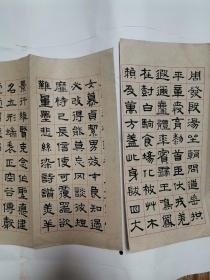 周發殷湯坐朝問道垂拱
平章愛育黎首臣伏戎羌
遐邇壹體率賓歸王鳴鳳
在樹白駒食場化被艸木
賴及萬方蓋此身髮四大
女慕貞絜男效才良知過
必改得能莫忘罔談彼短
靡恃己長信使可覆器欲
難量墨悲絲染詩讚羔羊
景行維賢克念作聖德建
名立形端表正空谷傳聲